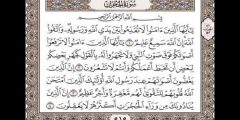 سُورَةُ الحُجُرَاتِ
بِسْمِ ٱللَّهِ ٱلرَّحْمَٰنِ ٱلرَّحِيمِ
يَٰٓأَيُّهَا ٱلَّذِينَ ءَامَنُوا۟ لَا تُقَدِّمُوا۟ بَيْنَ يَدَىِ ٱللَّهِ وَرَسُولِهِۦ وَٱتَّقُوا۟
ٱللَّهَ إِنَّ ٱللَّهَ سَمِيعٌ عَلِيمٌ ١ يَٰٓأَيُّهَا ٱلَّذِينَ ءَامَنُوا۟ لَا تَرْفَعُوٓا۟
أَصْوَٰتَكُمْ فَوْقَ صَوْتِ ٱلنَّبِىِّ وَلَا تَجْهَرُوا۟ لَهُۥ بِٱلْقَوْلِ كَجَهْرِ بَعْضِكُمْ
لِبَعْضٍ أَن تَحْبَطَ أَعْمَٰلُكُمْ وَأَنتُمْ لَا تَشْعُرُونَ ٢ إِنَّ ٱلَّذِينَ
يَغُضُّونَ أَصْوَٰتَهُمْ عِندَ رَسُولِ ٱللَّهِ أُو۟لَٰٓئِكَ ٱلَّذِينَ ٱمْتَحَنَ
ٱللَّهُ قُلُوبَهُمْ لِلتَّقْوَىٰ لَهُم مَّغْفِرَةٌ وَأَجْرٌ عَظِيمٌ ٣ إِنَّ ٱلَّذِينَ
يُنَادُونَكَ مِن وَرَآءِ ٱلْحُجُرَٰتِ أَكْثَرُهُمْ لَا يَعْقِلُونَ ٤
٥١٥